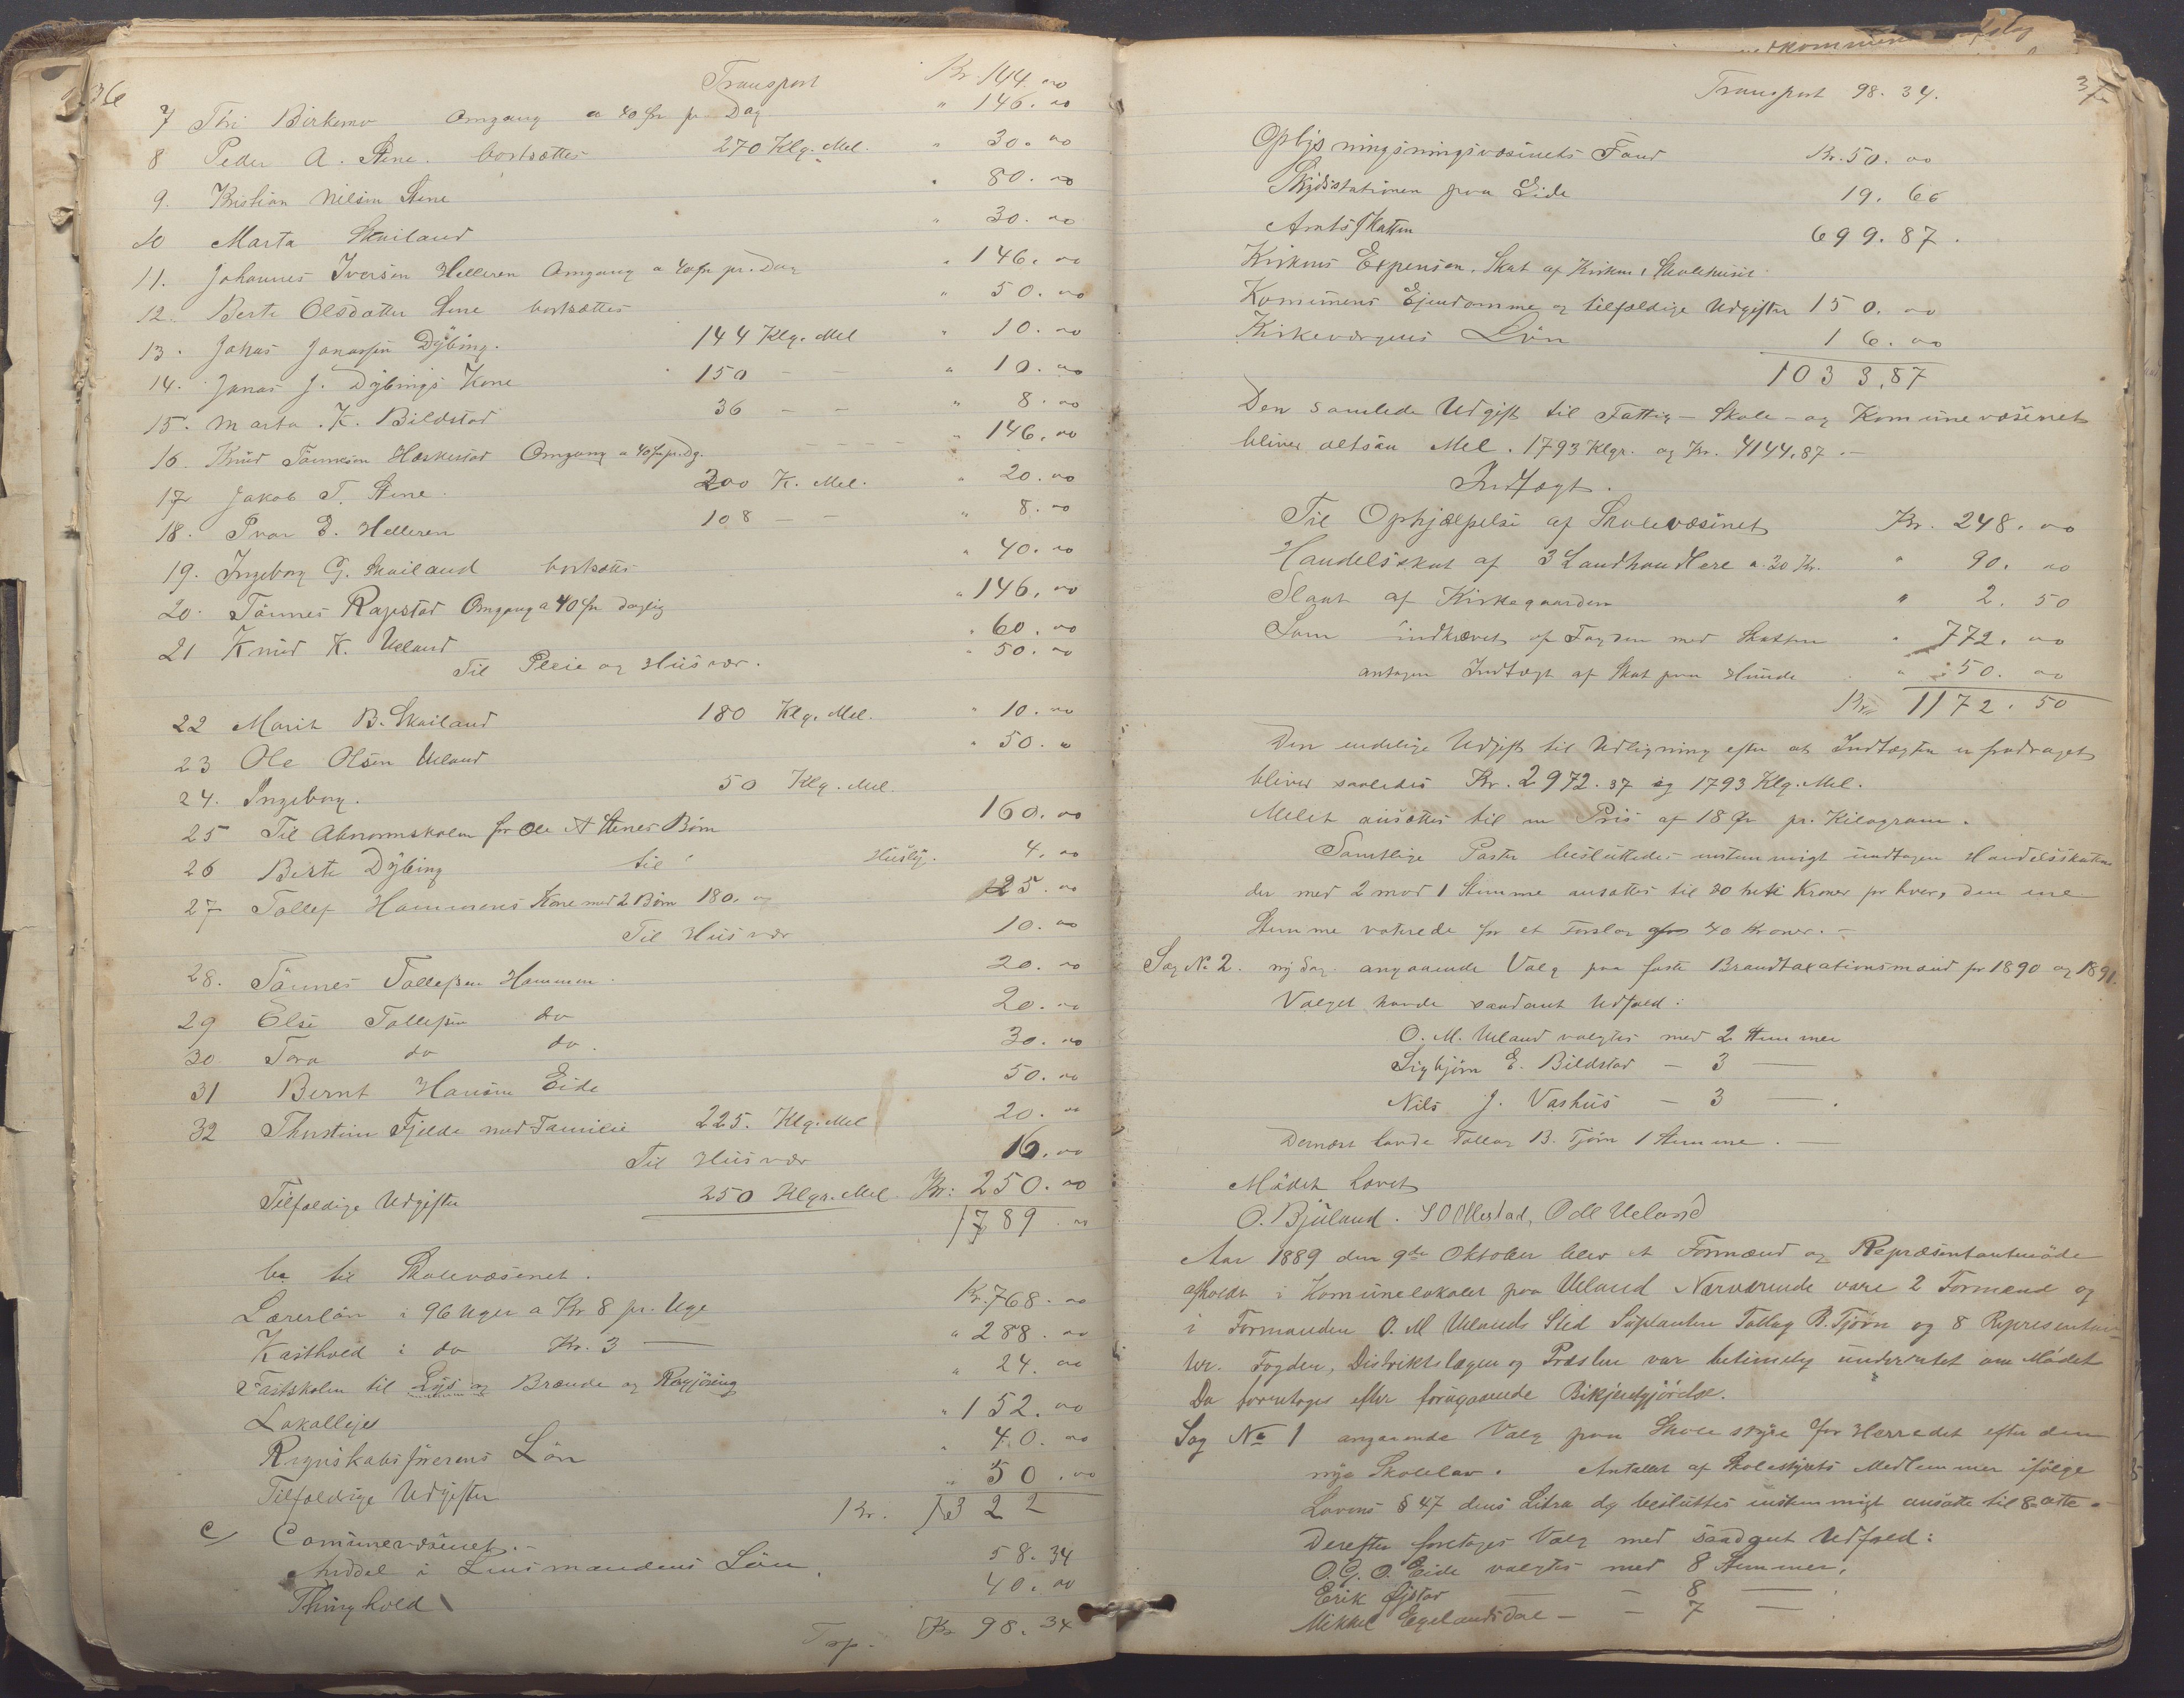 36
Transport Kr 144.00
7 Thri Birkemo Omgang a 40 Øre pr Dag " 146.00
8 Peder A. Stene. bortsættes 270 Klg. Mel. " 30.00
9. Kristian Nilsen Stene " 80.00
10 Marta Skailand " 30.00
11. Johannes Iversen Helleren Omgang a 40 Øre pr. Dag " 146.00
12. Berte Olsdatter Stene bortsættes " 50.00
13. Johas Jonassen Dÿbing. 144 Klg. Mel " 10.00
14. Jonas J. Dÿbings Kone 150 — — " 10.00
15. Marta K. Bildstad 36 — — " 8.00
16. Knud Tønnesen Hæskestad Omgang a 40 Øre pr. Dg. " 146.00
17 Jakob T. Stene. 200 K. Mel. " 20.00
18. Ivar E. Helleren 108 — — " 8.00
19. Ingeborg G. Skailand bortsættes " 40.00
20. Tønnes Rapstad Omgang a 40 Øre daglig " 146.00
21 Knud K. Ueland " 60.00
Til Pleie og Husvær. " 50.00
22 Marit B. Skailand 180 Klg. Mel. " 10.00
23 Ole Olsen Ueland " 50.00
24. Ingeborg. 50 Klg. Mel.
25 Til Abnormskolen for Ole A Stenes Børn 160.00
26 Berte Dÿbing til Huslÿ. 4.00
27 Tollef Hammrens Kone med 2 Børn 180. og 25.00
Til Husvær 10.00
28. Tønnes Tollefsen Hammren. 20.00
29 Else Tollefsen do 20.00
30 Tora do do. 30.00
31 Bernt Hansen Eide 50.00
32 Thustine Fjelde med Familie 225. Klg. Mel 20.00
Til Husvær 16.00
Tilfældige Udgifter 250 Klgr. Mel Kr: 250.00
1789.00
b. til Skolevæsenet.
Lærerløn i 96 Uger a Kr 8 pr. Uge Kr. 768.00
Kosthold i do Kr. 3 — " 288.00
Fastskolen til Lÿs og Brænde og Rengjøring " 24.00
Lokalleje " 152.00
Regnskabsførerens Løn " 40.00
Tilfældige Udgifter " 50.00
Kr. 1322
c/ Comünevæsenet.—
Andel i Lensmandens Løn. 58.34
Thinghold 40.00
Trp. Kr 98.34
37
Transport 98.34.
Oplysningsningsvæsenets Fond Kr. 50.00
Skydsstationen paa Eide 19.66
Amtsskatten 699.87.
Kirkens Expenser, Skat af Kirken & Skolehuset.
Komunens Ejendomme og tilfældige Udgifter 150.00
Kirkeværgens Løn 16.00
1033.87
Den samlede Udgift til Fattig- Skole- og Komunevæsenet
bliver altsaa Mel. 1793 Klgr. og Kr. 4144.87.—
Indtægt.
Til Ophjælpelse af Skolevæsenet Kr. 248.00
Handelsskat af 3 Landhandlere a 30 Kr. " 90.00
Slaat af Kirkegaarden " 2.50
Som indkrævet af Fogden med Skatten " 772.00
antagen Indtægt af Skat paa Hunde " 50.00
Kr. 1172.50
Den endelige Udgift til Udligning efter at Indtægten er fradraget
bliver saaledes Kr. 2972.37 og 1793 Klg. Mel.
Melet ansættes til en Pris af 18 Øre pr. Kilogram.
Samtlige Poster besluttedes enstemmigt undtagen Handelsskatten
der med 2 mod 1 Stemme ansattes til 30 treti Kroner pr hver, den ene
Stemme voterede for et Forslag 40 Kroner.—
Sag No 2. ny Sag. angaaende Valg paa faste Brandtaxationsmænd for 1890 og 1891.
Valget havde saadant Udfald:
O. M. Ueland valgtes med 2 Stemmer
Sigbjørn E. Bildstad — 3 —
Nils J. Vashus — 3 —.
Dernæst havde Tollag B. Tjørn 1 Stemme.—
Mødet hævet
O. Bjuland. S O Ollestad, Odl Ueland
Aar 1889 den 9de Oktober blev et Formænd og Repræsentantmøde
afholdt i Komunelokalet paa Ueland Nærværende vare 2 Formænd og
i Formanden O. M Uelands Sted Suplanten Tollag B. Tjørn og 8 Representan-
ter. Fogden, Distriktslægen og Præsten var betimelig underrettet om Mødet
Da foretoges efter forugaaende Bekjentgjørelse.
Sag No 1 angaaende Valg paa Skolestyre for Herredet efter den
nye Skolelov. Antallet af Skolestyrets Medlemmer ifølge
Lovens § 47 dens Litra d, besluttes enstemmigt ansatte til 8 otte.
Derefter foretoges Valg med saadant Udfald:
O. G. O. Eide valgtes med 8 Stemmer.
Erik Øjstad — — 8 —
Mikkel Egelandsdal — — 7 —